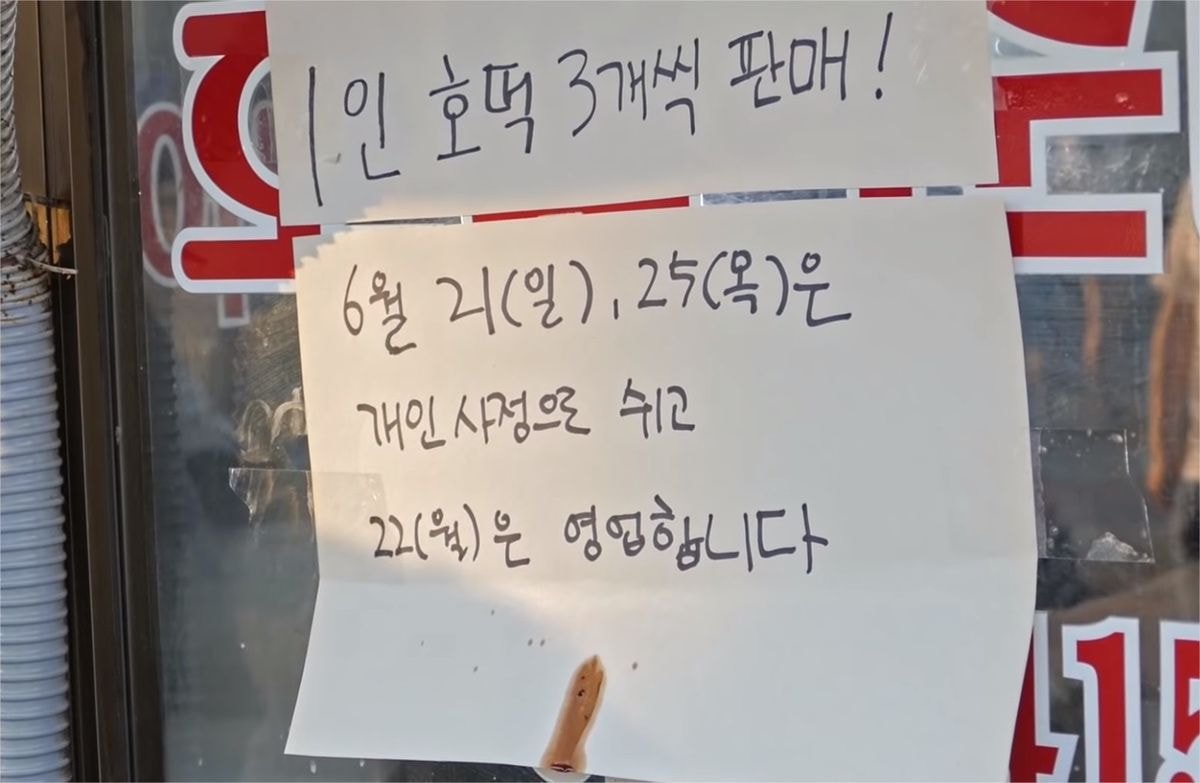 1인 호떡 3개씩 판매!
6월 21(일), 25(목)은
개인사정으로 쉬고
22(월)은 영업합니다